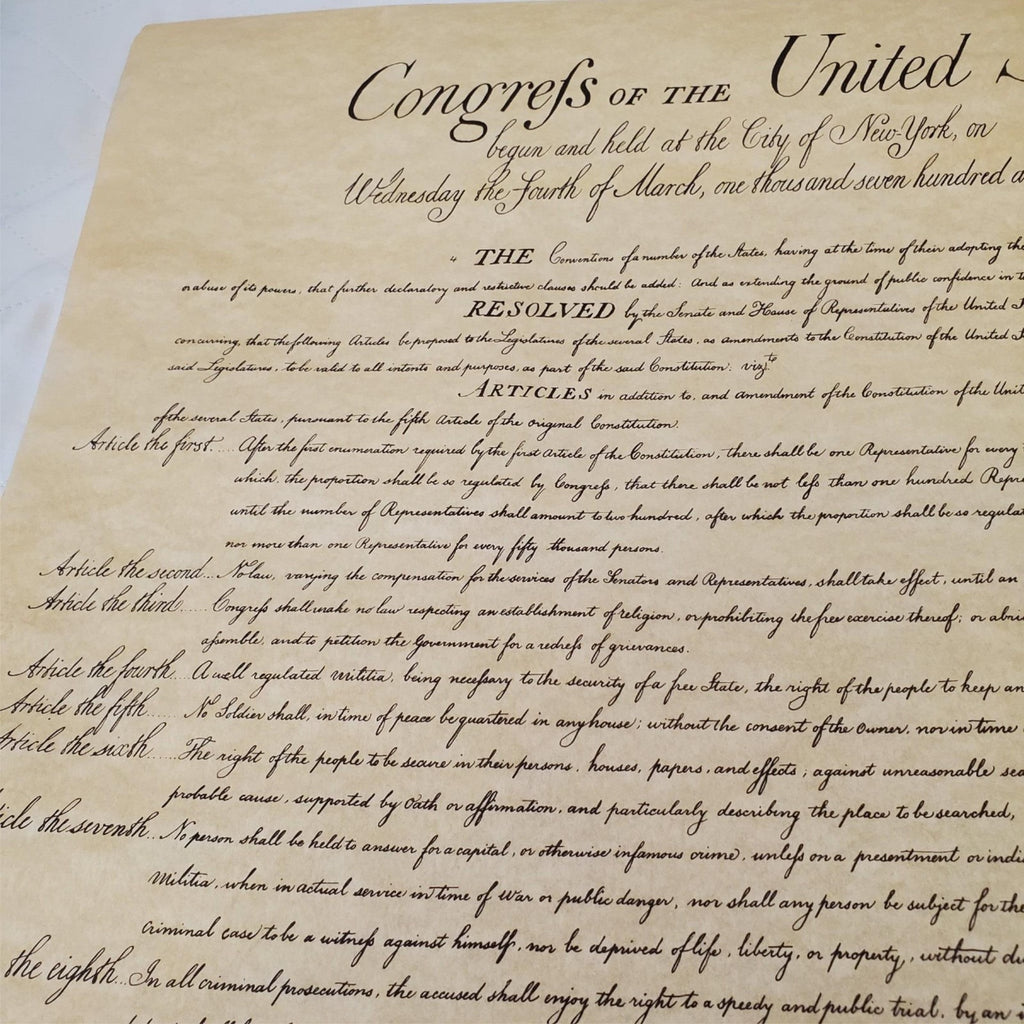 Congreſs OF THE United
begun and held at the City of New-York, on
Wednesday the Fourth of March, one thousand seven hundred a
THE Conventions of a number of the States, having at the time of their adopting the
or abuse of its powers, that further declaratory and restrictive clauses should be added: And as extending the ground of public confidence in t
RESOLVED by the Senate and House of Representatives of the United S
concurring, that the following Articles be proposed to the Legislatures of the several States, as amendments to the Constitution of the United S
said Legislatures, to be valid to all intents and purposes, as part of the said Constitution: vizt
ARTICLES in addition to, and amendment of the Constitution of the Unit
of the several States, pursuant to the fifth Article of the original Constitution.
Article the first.... After the first enumeration required by the first Article of the Constitution, there shall be one Representative for every
which, the proportion shall be so regulated by Congreſs, that there shall be not leſs than one hundred Repre
until the number of Representatives shall amount to two hundred, after which the proportion shall be so regula
nor more than one Representative for every fifty thousand persons.
Article the second... No law, varying the compensation for the services of the Senators and Representatives, shall take effect, until an
Article the third...... Congreſs shall make no law respecting an establishment of religion, or prohibiting the free exercise thereof; or abri
aſsemble, and to petition the Government for a redreſs of grievances.
Article the fourth... A well regulated Militia, being neceſsary to the security of a free State, the right of the people to keep an
Article the fifth...... No Soldier shall, in time of peace be quartered in any house; without the consent of the Owner, nor in time
Article the sixth...... The right of the people to be secure in their persons, houses, papers, and effects, against unreasonable sea
probable cause, supported by Oath or affirmation, and particularly describing the place to be searched,
icle the seventh... No person shall be held to answer for a capital, or otherwise infamous crime, unleſs on a presentment or indi
Militia, when in actual service in time of War or public danger, nor shall any person be subject for the
criminal case to be a witneſs against himself, nor be deprived of life, liberty, or property, without du
the eighth... In all criminal prosecutions, the accused shall enjoy the right to a speedy and public trial, by an i